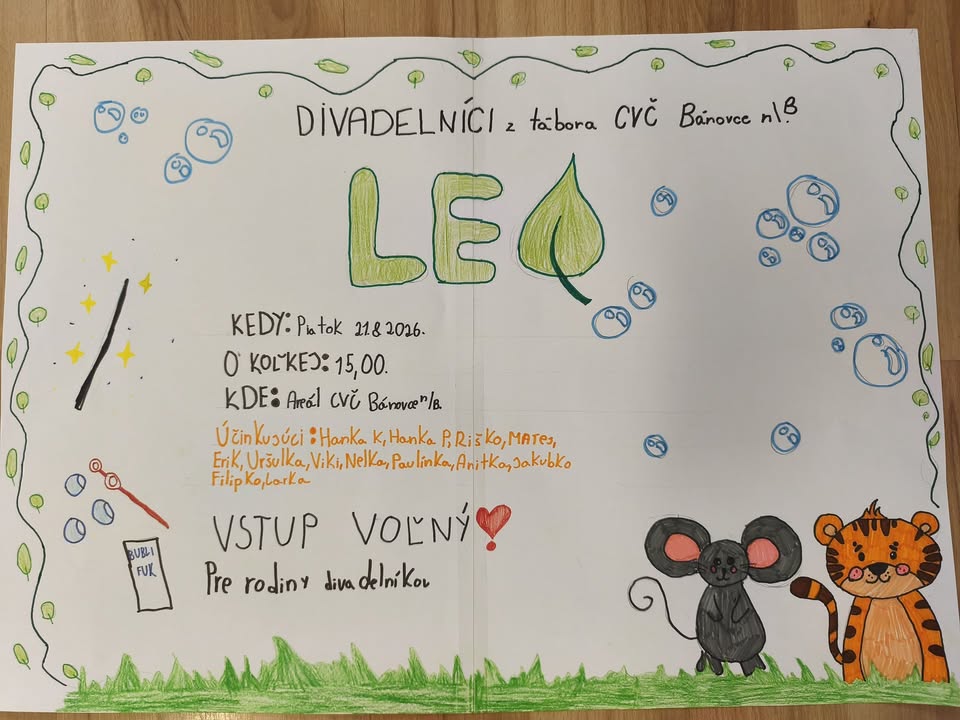 DIVADELNÍCI z tábora CVČ Bánovce n/B.
LEO
KEDY: Piatok 21.8 2026.
O KOĽKEJ: 15,00.
KDE: Areál CVČ Bánovce n/B.
Účinkujúci: Hanka K, Hanka P, Riško, MATeJ,
Erik, Uršulka, Viki, Nelka, Paulínka, Anitka, Jakubko
Filipko, Larka
VSTUP VOĽNÝ!
BUBLI
FUK
Pre rodiny divadelníkov